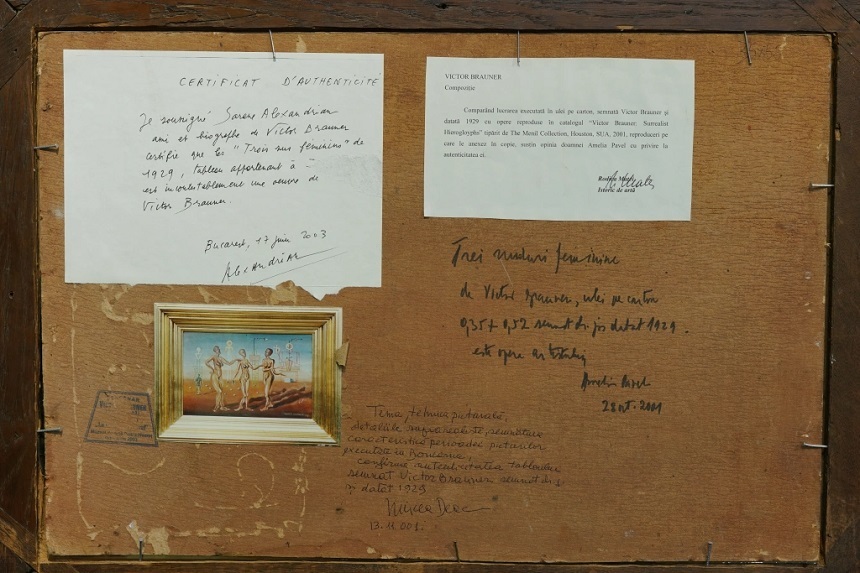 CERTIFICAT D'AUTHENTICITÉ
Je soussigné Sarane Alexandrian
ami et biographe de Victor Brauner
certifie que les "Trois nus féminins" de
1929, tableau appartenant à —
est incontestablement une oeuvre de
Victor Brauner.
Bucarest, 17 juin 2003
Alexandrian
VICTOR BRAUNER
Compoziție
Comparând lucrarea executată în ulei pe carton, semnată Victor Brauner și
datată 1929 cu opere reproduse în catalogul "Victor Brauner. Surrealist
Hieroglyphs" tipărit de The Menil Collection, Houston, SUA, 2001, reproduceri pe
care le anexez în copie, susțin opinia doamnei Amelia Pavel cu privire la
autenticitatea ei.
Istoric de artă
Trei nuduri feminine
de Victor Brauner, ulei pe carton
0,35 x 0,52 semnat dr. jos datat 1929.
este opera
Amelia Pavel
28 oct. 2001
Tema, tehnica picturală,
detaliile suprarealiste, semnătura
caracteristică perioadei picturilor
executate în România,
confirmă autenticitatea tabloului
semnat Victor Brauner semnat
datat 1929
13.11.001.